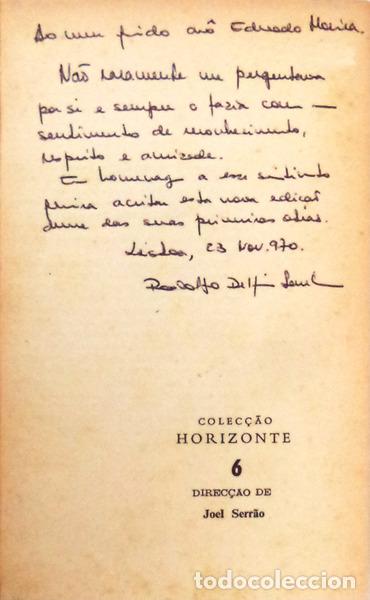 Ao meu avô Eduardo Moreira.
Não raramente me perguntava
por si e sempre o fazia com
sentimento de reconhecimento,
respeito e amizade.
Em homenagem a esse sentimento
aceitar esta nova edição
duma das suas primeiras obras.
Lisboa, 23 Nov. 970.
Rodolfo Delfim
COLECÇÃO
HORIZONTE
6
DIRECÇÃO DE
Joel Serrão
todocoleccion